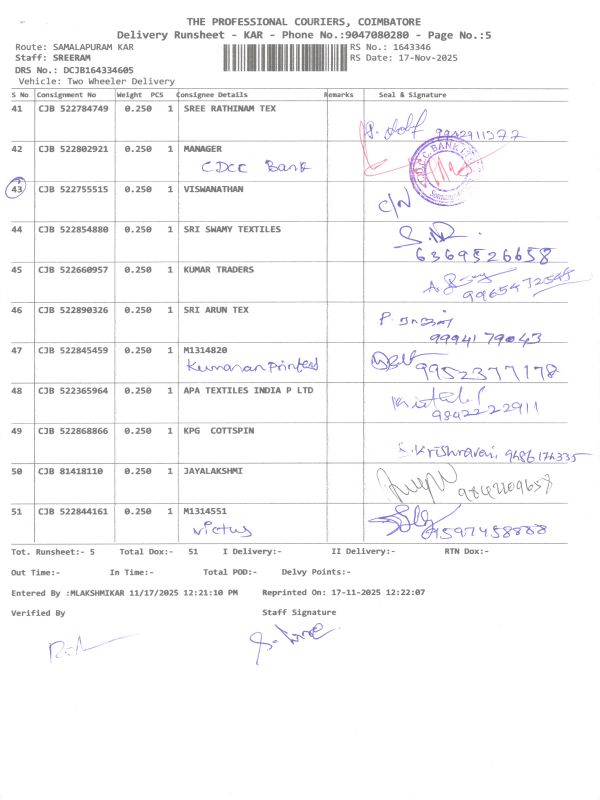 THE PROFESSIONAL COURIERS, COIMBATORE
Delivery Runsheet - KAR - Phone No.:9047080280 - Page No.:5
Route: SAMALAPURAM KAR RS No.: 1643346
Staff: SREERAM RS Date: 17-Nov-2025
DRS No.: DCJB164334605
Vehicle: Two Wheeler Delivery
S No Consignment No Weight PCS Consignee Details Remarks Seal & Signature
41 CJB 522784749 0.250 1 SREE RATHINAM TEX
9942911377
42 CJB 522802921 0.250 1 MANAGER
CDCC Bank
43 CJB 522755515 0.250 1 VISWANATHAN
C/N
44 CJB 522854880 0.250 1 SRI SWAMY TEXTILES
6369526658
45 CJB 522660957 0.250 1 KUMAR TRADERS
9965472545
46 CJB 522890326 0.250 1 SRI ARUN TEX
9994179043
47 CJB 522845459 0.250 1 M1314820
Kumaran Printers 9952377178
48 CJB 522365964 0.250 1 APA TEXTILES INDIA P LTD
9842222911
49 CJB 522868866 0.250 1 KPG COTTSPIN
9486174335
50 CJB 81418110 0.250 1 JAYALAKSHMI
9842209657
51 CJB 522844161 0.250 1 M1314551
Victus 9597458888
Tot. Runsheet:- 5 Total Dox:- 51 I Delivery:- II Delivery:- RTN Dox:-
Out Time:- In Time:- Total POD:- Delvy Points:-
Entered By :MLAKSHMIKAR 11/17/2025 12:21:10 PM Reprinted On: 17-11-2025 12:22:07
Verified By Staff Signature